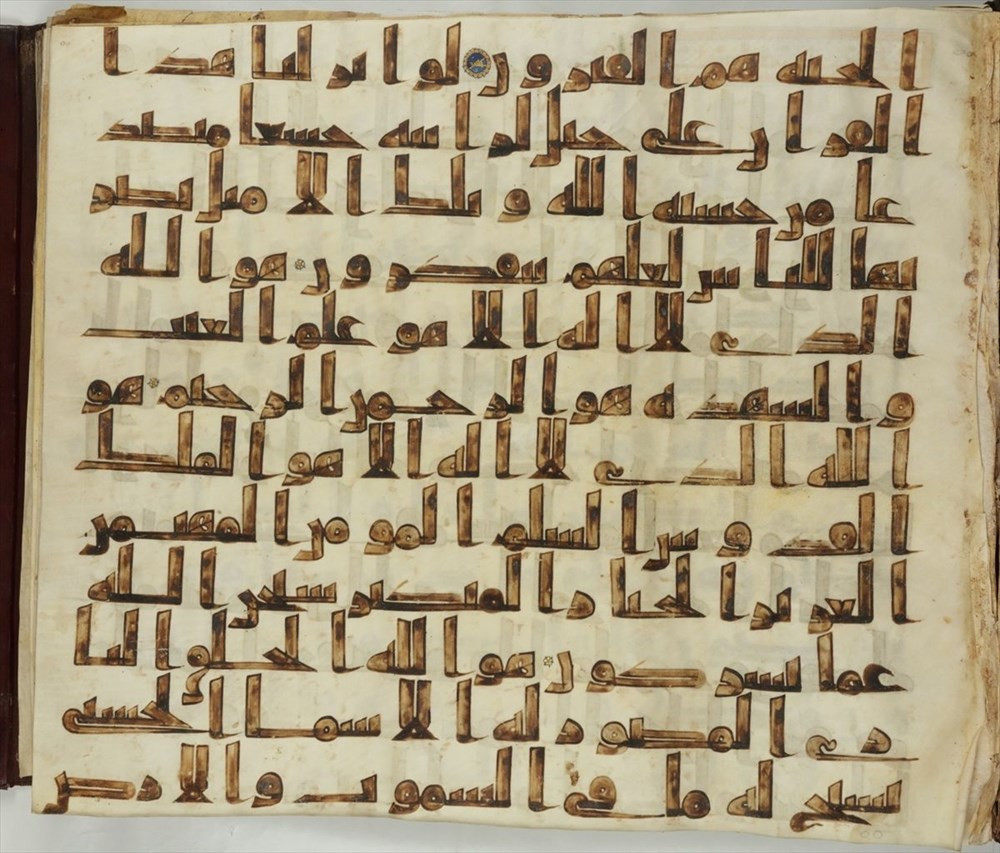 الجنه هم الفيزون لو انزلنا هذا
القران على جبل لرايته خشعا متصد
عا من خشيه الله وتلك الامثل نضر
بها للناس لعلهم يتفكرون هو الله
الذي لا اله الا هو علم الغيب
والشهده هو الرحمن الرحيم هو
الله الذي لا اله الا هو الملك
القدوس السلم المومن المهيمن
العزيز الجبار المتكبر سبحن الله
عما يشركون هو الله الخلق البا
ري المصور له الاسما الحسنى
يسبح له ما في السموت والارض